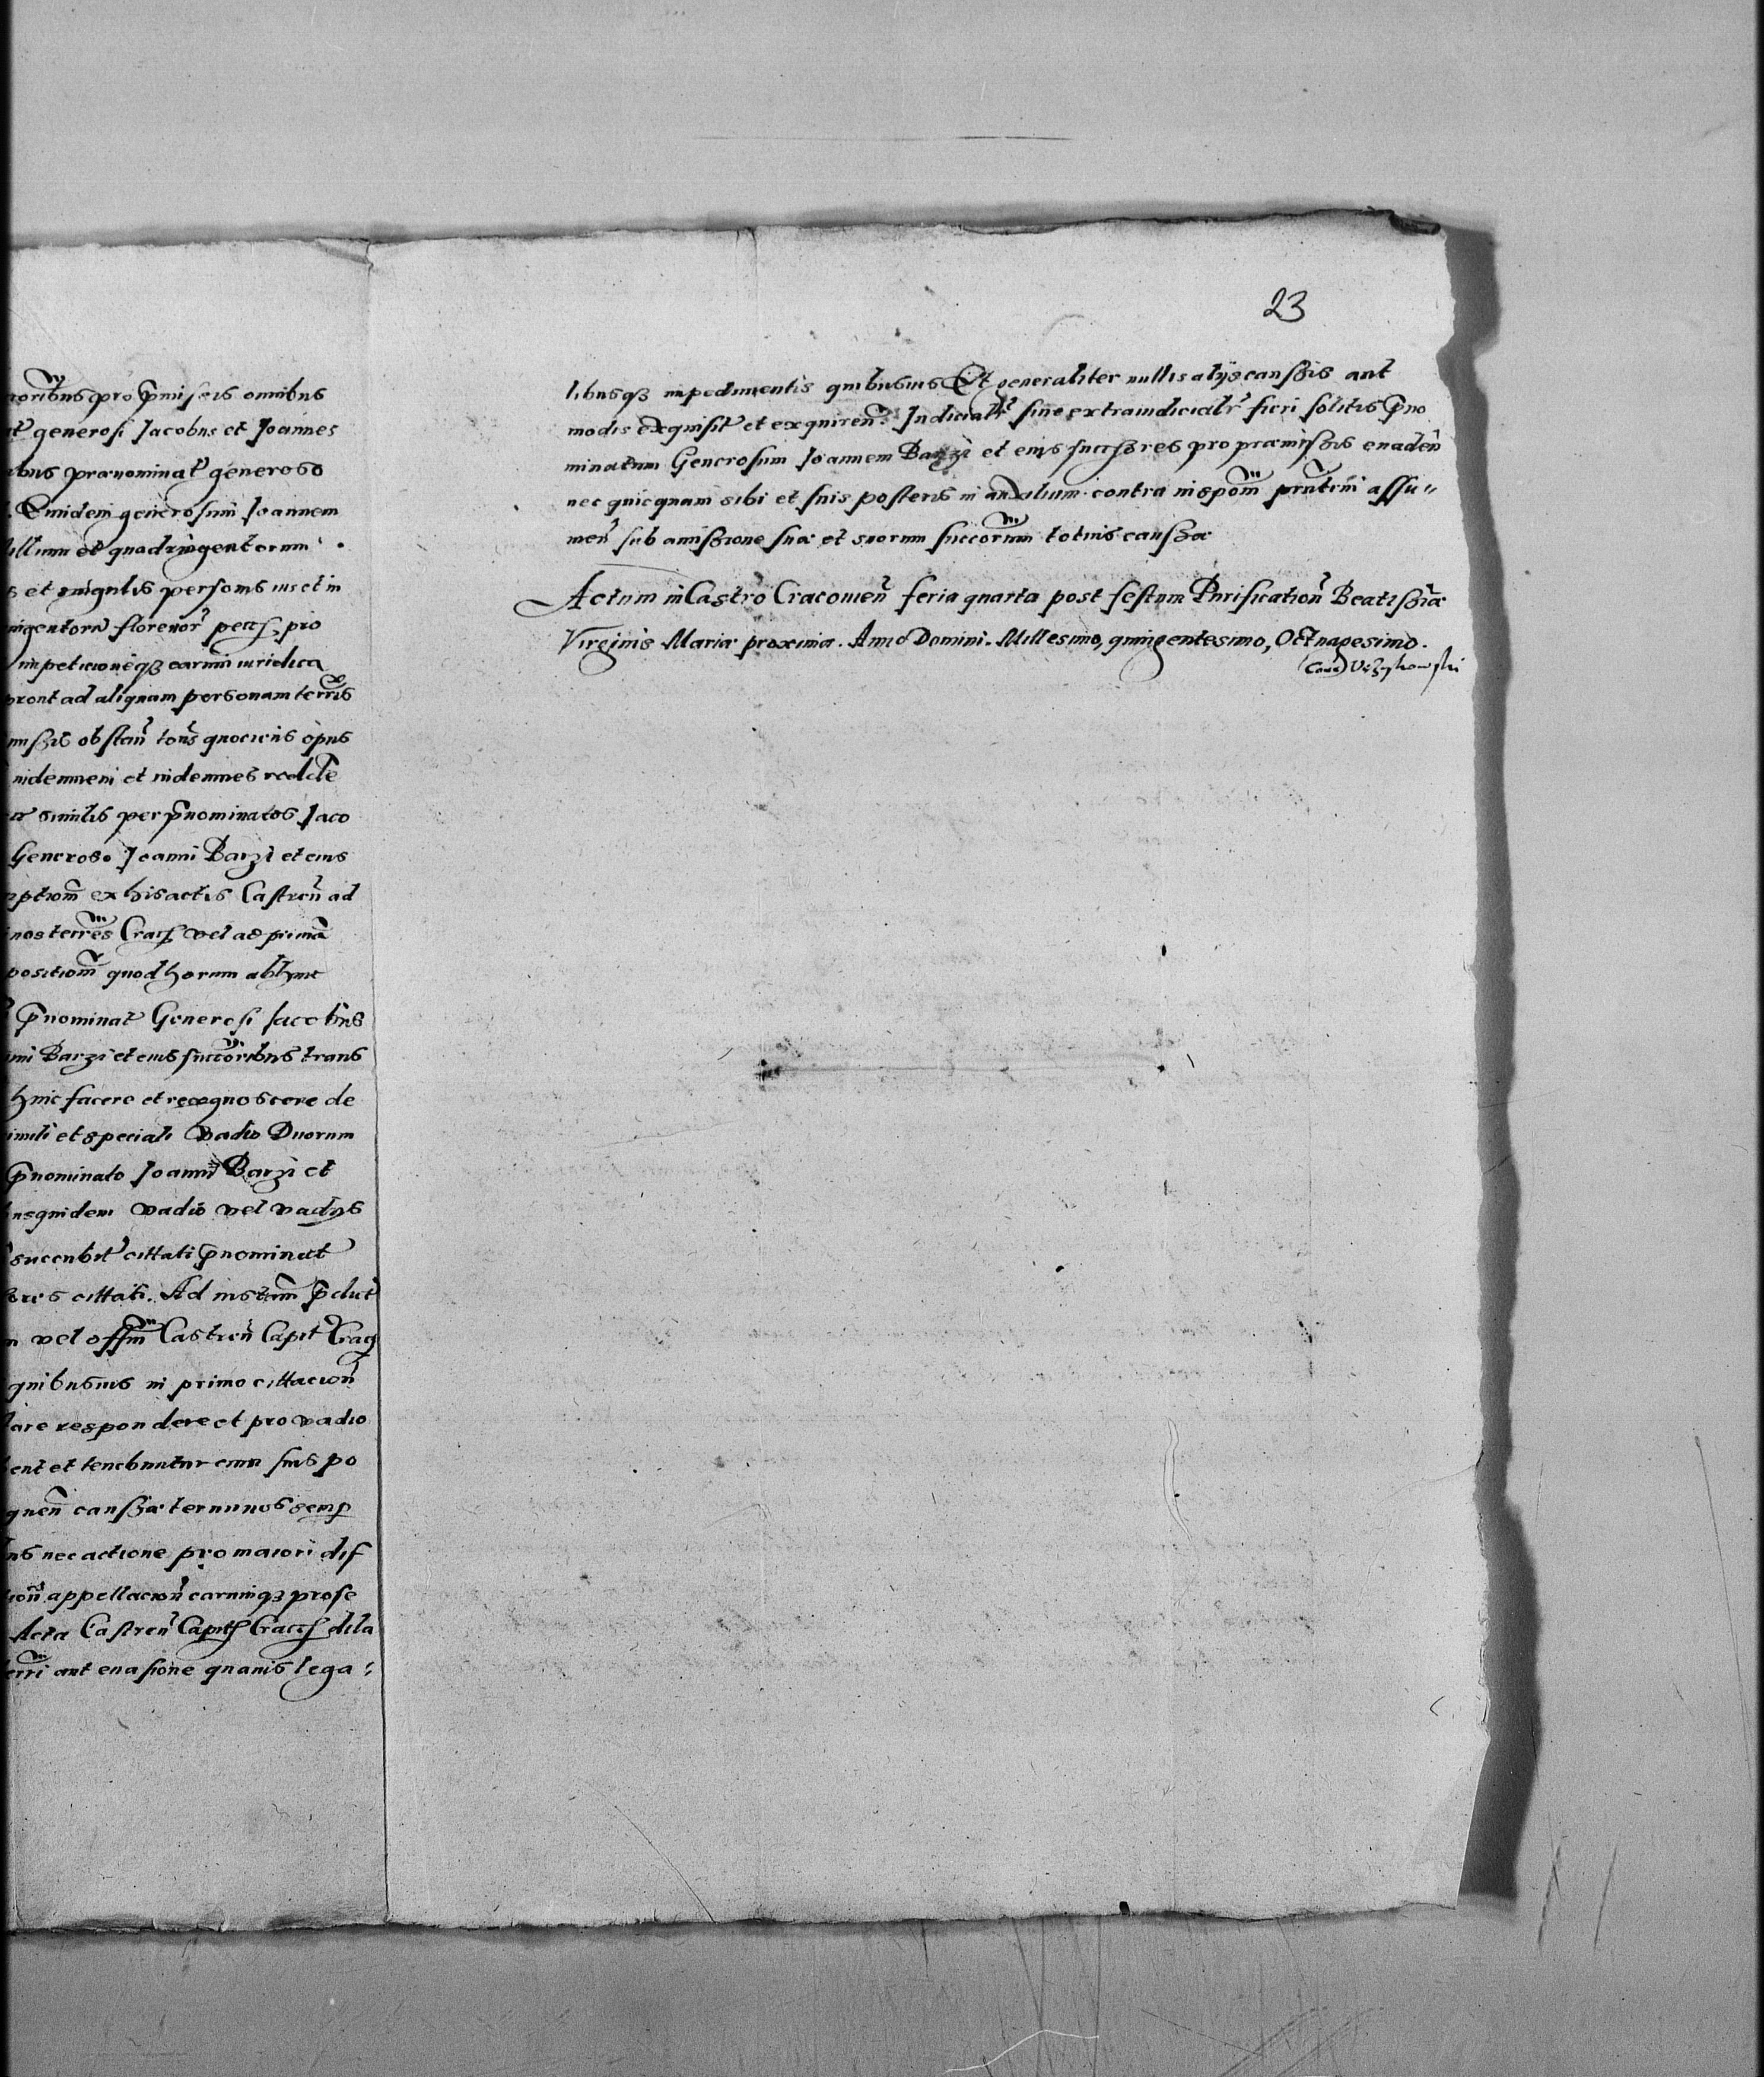 pro p̃missis omnibus
generosi Jacobus et Joannes
prænominat generoso
Eiusdem generosum Joannem
et quadringentorum
et singulis personis ius et in
florenor pecch, pro
impeticioneq₃ earum iuridica
pront ad aliquam personam terris
obstan totis quociens opus
indemnem et indemnes redde
similis per p̃nominatos Jaco
Generoso Joanni Barzi et eius
ex his actis Castren ad
terres Crac vel ad primã
quod horum
p̃nominat Generosi Jacobus
Barzi et eius succoribus trans
huic facere et recognoscere de
et speciali vadio Duorum
p̃nominato Joanni Barzi et
vadio vel vadijs
succubit cittati p̃nominat
cittati. Ad instam p̃dict
vel offm Castren Capit Crac
quibusuis in primo cittacion
respondere et pro vadio
et tenebuntur cum suis po
caussæ terminos semp
nec actione pro maiori dif
appellacion earumq₃ prose
Acta Castren Capit Crac dila
aut euasione quauis lega:
23
libusq₃ impedimentis quibusuis Et generaliter nullis alijs caussis aut
modis exquisit et exquiren. Judicialr siue extraiudicialr fieri solitis p̃no
minatum Generosum Joannem Barzi et eius successores pro præmissis euaden
nec quicquam sibi et suis posteris in auxilium contra inspom prntem assu=
men sub amissione suæ et suorum succorum totius caussæ
Actum in Castro Cracouien feria quarta post festum Purification Beatissimæ
Virginis Mariæ proxima. Anno Domini. Millesimo, quingentesimo, Octuagesimo.